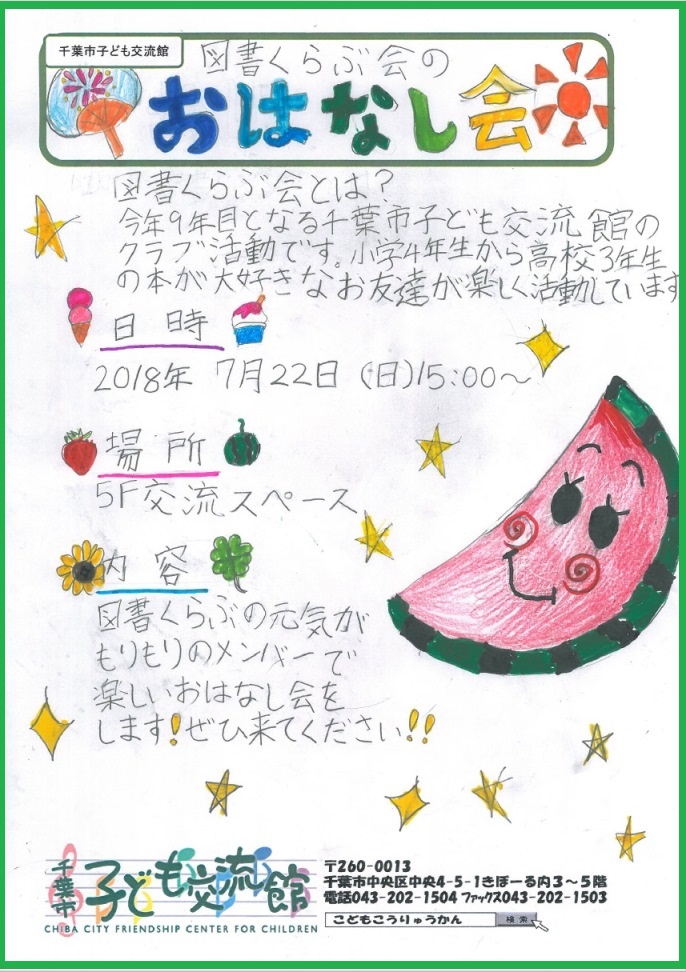 千葉市子ども交流館
図書くらぶ会の
おはなし会
図書くらぶ会とは?
今年9年目となる千葉市子ども交流館の
クラブ活動です。小学4年生から高校3年生
の本が大好きなお友達が楽しく活動しています
日時
2018年 7月22日(日)15:00~
場所
5F交流スペース
内容
図書くらぶの元気が
もりもりのメンバーで
楽しいおはなし会を
します!ぜひ来てください!!
千葉市子ども交流館
CHIBA CITY FRIENDSHIP CENTER FOR CHILDREN
〒260-0013
千葉市中央区中央4-5-1きぼーる内3~5階
電話043-202-1504 ファックス043-202-1503
こどもこうりゅうかん 検索